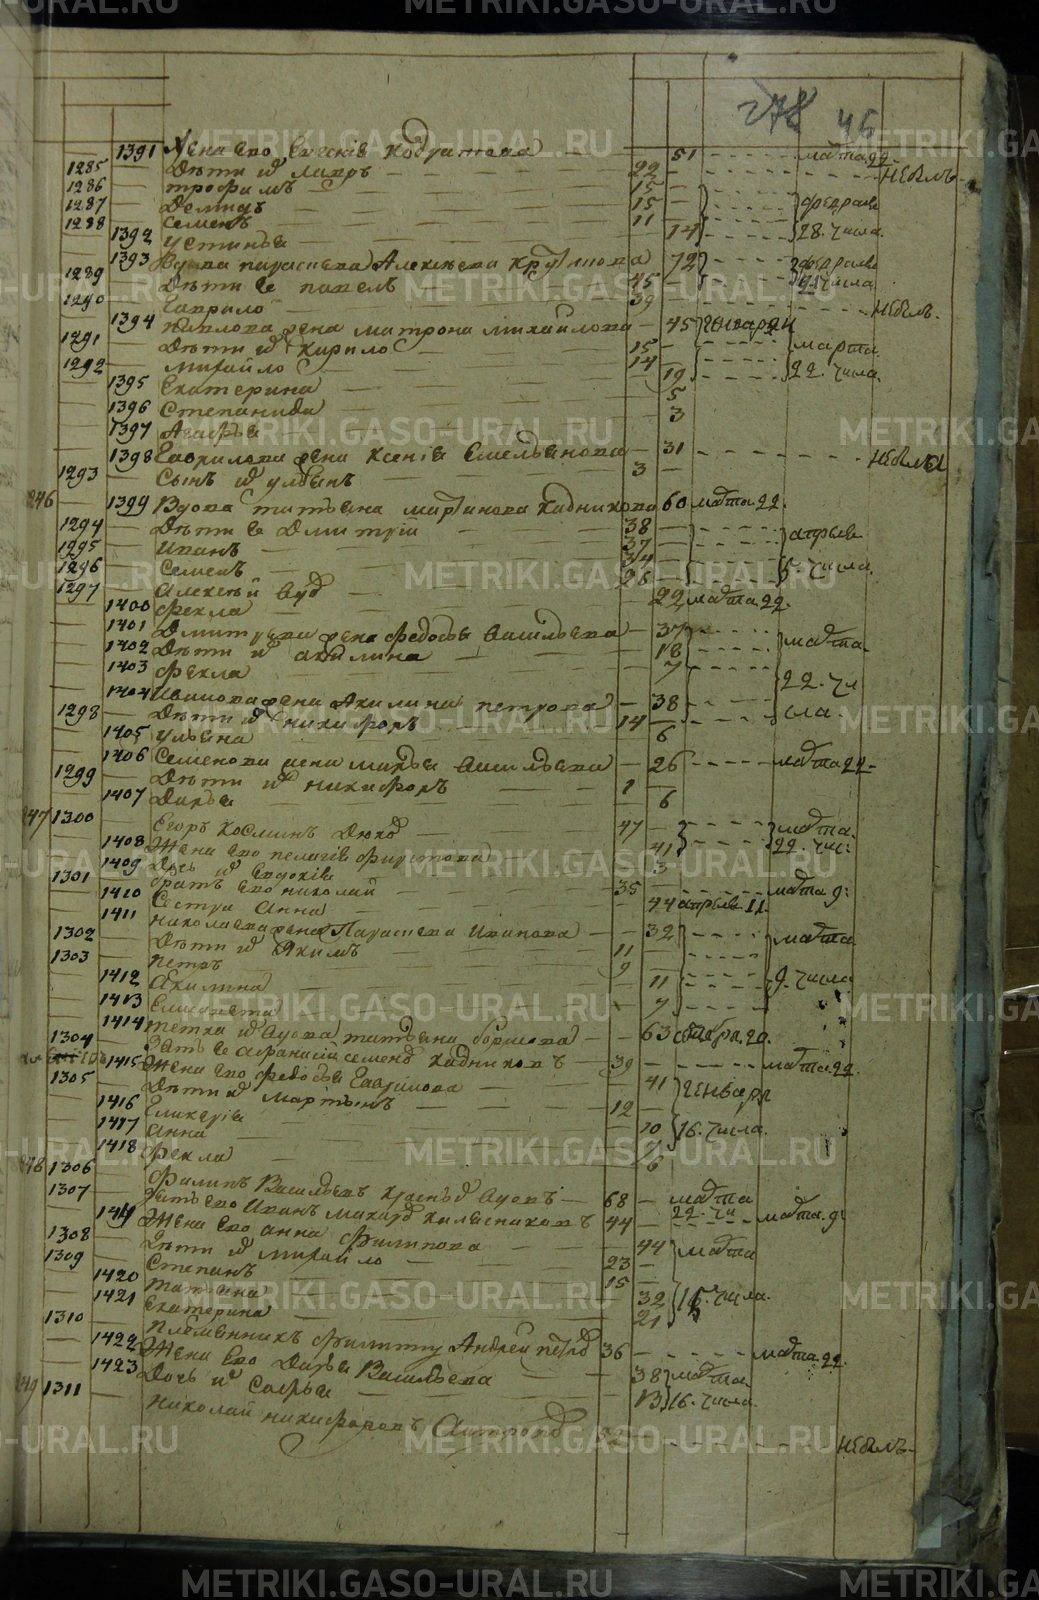 METRIKI.GASO-URAL.RU
278 46
1391 Жена его Евгенiя Кодратова 51 марта 22
1285 Дѣти их Лавръ 22 небылъ
1286 Трофимъ 15
1287 Демидъ 15 февраля
1288 Семенъ 11 28. числа.
1392 Устинья 14
1393 Вдова Параскева Алексѣева 72 февраля
1289 Дѣти ее Павелъ 45 числа
1290 Гаврило 39 небылъ.
1394 Павлова жена Матрона Михайлова 45 генваря
1291 Дѣти их Кирило 15 марта
1292 Михайло 14 22. числа.
1395 Екатерина 19
1396 Степанида 5
1397 Агафья 3
1398 Гаврилова жена Ксенiя Емельянова 31 небыла
1293 Сынъ их Ульянъ 3
246 1399 Вдова Татьяна Мартинова Кадникова 60 марта 22.
1294 Дѣти ее Дмитрiй 38 апрѣля
1295 Иванъ 37
1296 Семенъ 34 5. числа.
1297 Алексѣй 26
1400 Фекла 22 марта 22.
1401 Дмитрѣва жена Федосья Васильева 37
1402 Дѣти их Акилина 18 марта
1403 Фекла 7 22. чи
1404 Иванова жена Акилина Петрова 38 сла.
1298 Дѣти их Никифоръ 14
1405 Ульяна 6
1406 Семенова жена Марья Васильева 26 марта 22
1299 Дѣти их Никифоръ 1
1407 Дарья 6
247 1300 Егоръ Косминъ 47 марта.
1408 Жена его Пелагiя 41 22. чис:
1409 Дочь их Евдокiя 3
1301 Братъ его Николай 35 марта 9:
1410 Сестра Анна 44 апрѣля 11.
1411 Николаева жена Параскева Иванова 32 марта
1302 Дѣти их Якимъ 11
1303 Петръ 9 9. числа
1412 Акилина 11
1413 Елисавета 7
1414 Тетка их вдова Татьяна 63 20.
1304 Зять ее Афанасiй Семенов Кадниковъ 39 марта 22.
1415 Жена его Федосья Гаврилова 41 генваря
1305 Дѣти их Мартынъ 12
1416 Гликерiя 10 16. числа.
1417 Анна 7
1418 Фекла 6
248 1306 Филипъ Васильевъ 68 марта
1307 Зять его Иванъ Макаров 44 22. чи марта 9:
1419 Жена его Анна Филипова 44 марта
1308 Дѣти их Михайло 23
1309 Степанъ 15
1420 Татьяна 32 15. числа.
1421 Екатерина 21
1310 Племянникъ Филипу Андрей Петров 36 марта 22.
1422 Жена его Дарья Васильева 38 марта
1423 Дочь их Софья 13 16. числа.
249 1311 Николай Никифоровъ небылъ